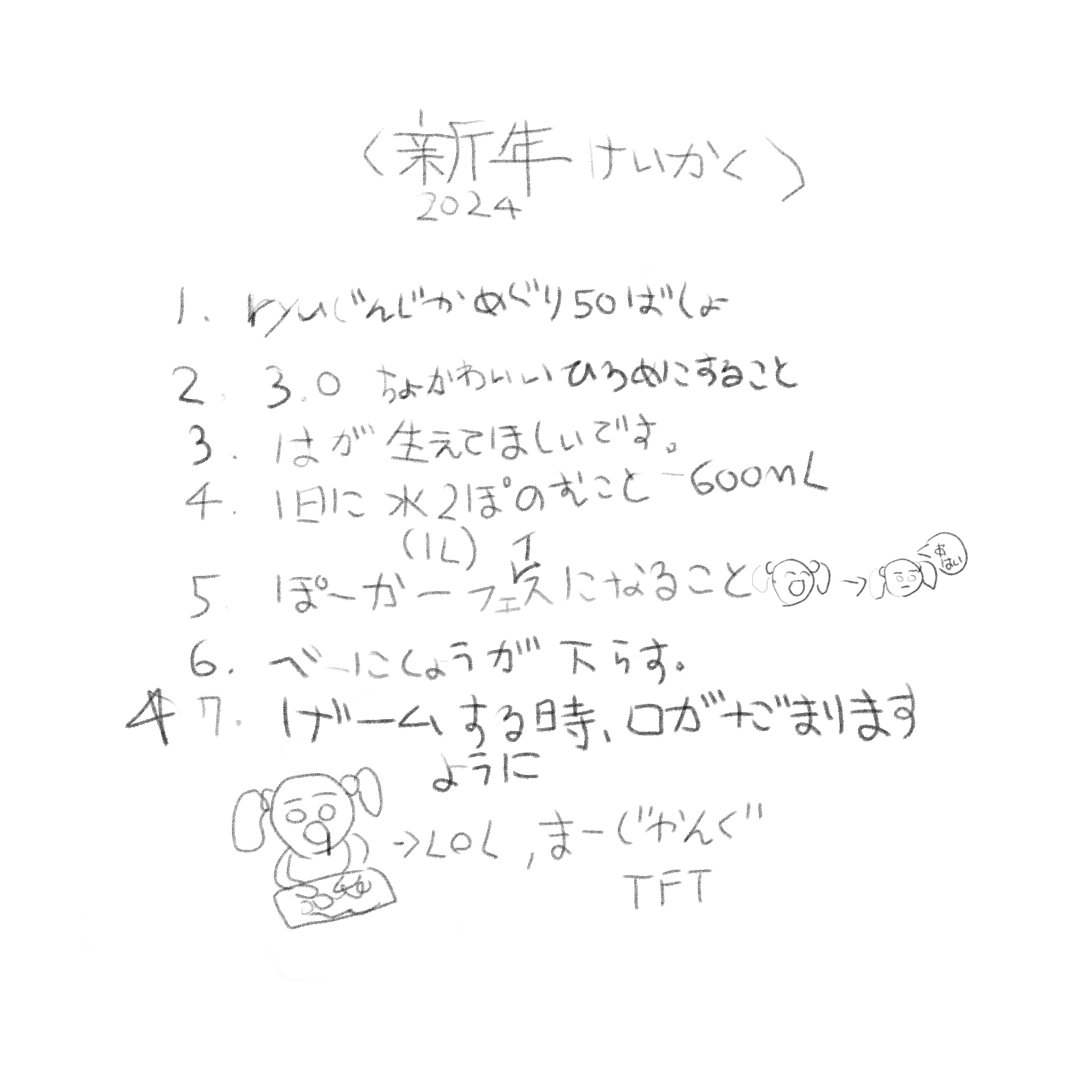 〈新年けいかく〉
2024
1. ryuじんじかめぐり50ばしょ
2. 3.0 ちょかわいいひろめにすること
3. はが生えてほしいです。
4. 1日に水2ぽのむこと-600mL
(1L)
5. ぽーかーフェイスになること→
あ
はい
6. べーにしょうが下らす。
7. げーむする時、口がだまります
ように
→LOL,まーじゃんぐ
TFT